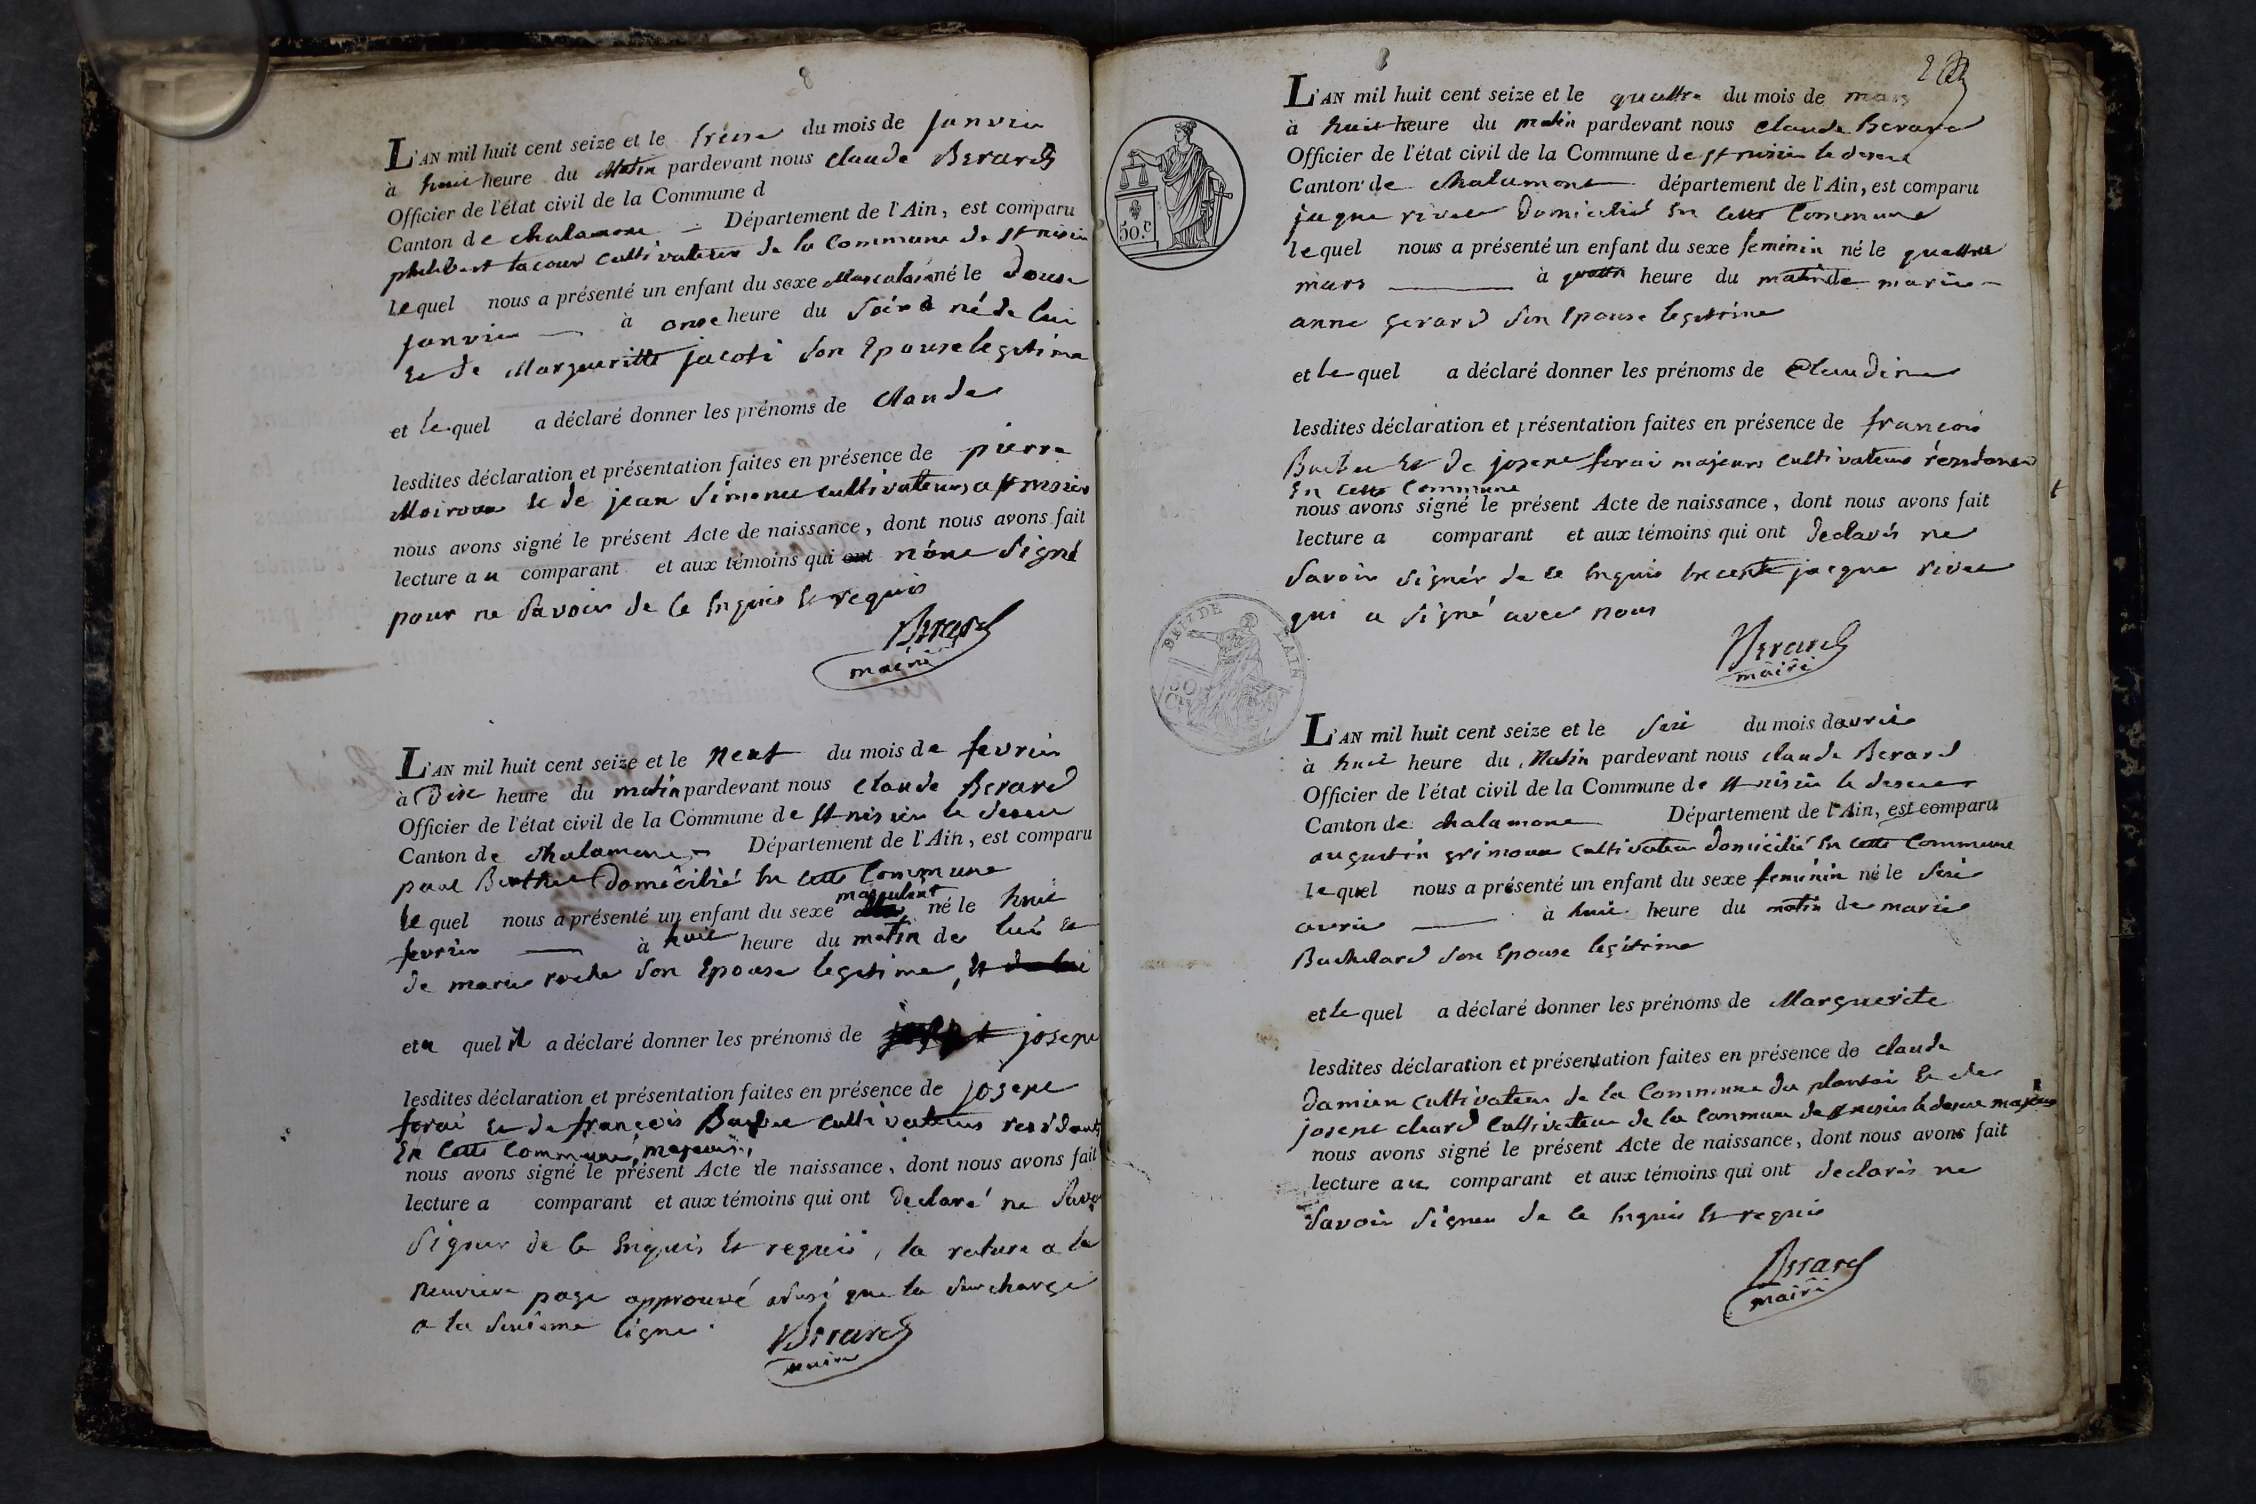 8
L'AN mil huit cent seize et le treise du mois de janvier
à huit heure du Matin pardevant nous claude Berard
Officier de l'état civil de la Commune d
Canton de chalamont - Département de l'Ain, est comparu
philibert lacour cultivateur de la Commune de st nisier
lequel nous a présenté un enfant du sexe Masculain né le douse
janvier — à onse heure du soir né de lui
et de Margueritte jacoti son Epouse legitime
et lequel a déclaré donner les prénoms de claude
lesdites déclaration et présentation faites en présence de pierre
Moiroux et de jean simonet cultivateurs a st nisier
nous avons signé le présent Acte de naissance, dont nous avons fait
lecture au comparant et aux témoins qui ont n'ont signé
pour ne savoir de ce Enquis et requis
Berard
maire
L'AN mil huit cent seize et le neuf du mois de fevrier
à Dix heure du matin pardevant nous claude Berard
Officier de l'état civil de la Commune de st nisier le desert
Canton de chalamont - Département de l'Ain, est comparu
paul Berthet domicilié En cette Commune
lequel nous a présenté un enfant du sexe masculin né le huit
fevrier — à huit heure du matin de lui et
de marie roche son Epouse legitime, et de lui
et a quel il a déclaré donner les prénoms de joseph joseph
lesdites déclaration et présentation faites en présence de joseph
forai et de françois Buchet cultivateurs residants
En cette Commune, majeurs,
nous avons signé le présent Acte de naissance, dont nous avons fait
lecture a comparant et aux témoins qui ont declaré ne savoir
signer de ce Enquis et requis, la rature a la
neuvieme page approuvé ainsi que la surcharge
a la sixième ligne.
Berard
maire
8
2
50.C
L'AN mil huit cent seize et le quattre du mois de mars
à huit heure du matin pardevant nous claude Berard
Officier de l'état civil de la Commune de st nisier le desert
Canton de chalamont département de l'Ain, est comparu
jaque rivet domicilié En cette Commune
lequel nous a présenté un enfant du sexe feminin né le quattre
mars — à quattre heure du matin de marie
anne gerard son Epouse legitime
et lequel a déclaré donner les prénoms de Claudine
lesdites déclaration et présentation faites en présence de francois
Buchet et de joseph forai majeurs cultivateurs résidants
En cette Commune
nous avons signé le présent Acte de naissance, dont nous avons fait
lecture a comparant et aux témoins qui ont declarés ne
savoir signér de ce Enquis Excepté jacque rivet
qui a signé avec nous
Berard
maire
DE L'AIN
50
L'AN mil huit cent seize et le sixe du mois d'avril
à huit heure du Matin pardevant nous claude Berard
Officier de l'état civil de la Commune de st nisier le desert
Canton de chalamont Département de l'Ain, est comparu
augustin grimoux cultivateur domicilié En cette Commune
lequel nous a présenté un enfant du sexe feminin né le sixe
avril — à huit heure du matin de marie
Buchelard son Epouse legitime
et lequel a déclaré donner les prénoms de Marguerite
lesdites déclaration et présentation faites en présence de claude
damien cultivateur de la Commune du plantai Et de
joseph cheard Cultivateur de la Commune de st nisier le desert majeurs
nous avons signé le présent Acte de naissance, dont nous avons fait
lecture au comparant et aux témoins qui ont declarés ne
savoir signer de ce Enquis et requis
Berard
maire